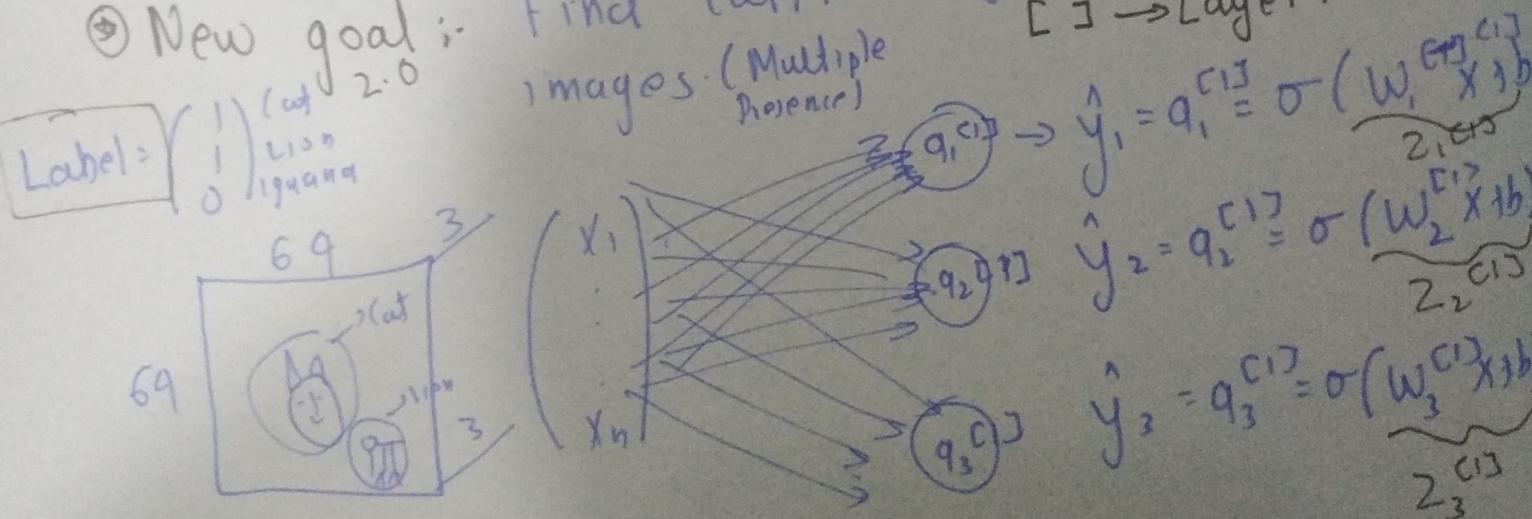 New goal :- Find
2.0
images. (Multiple
Presence)
[ ] → Layer
Label = (1 1 0) Cat
Lion
iguana
69
3
69
3
Cat
lion
X1
.
.
.
Xn
a1[1] → ŷ1 = a1[1] = σ(W1[1] X + b
Z1[1]
a2[1] ŷ2 = a2[1] = σ(W2[1] X + b
Z2[1]
a3[1] ŷ3 = a3[1] = σ(W3[1] X + b
Z3[1]